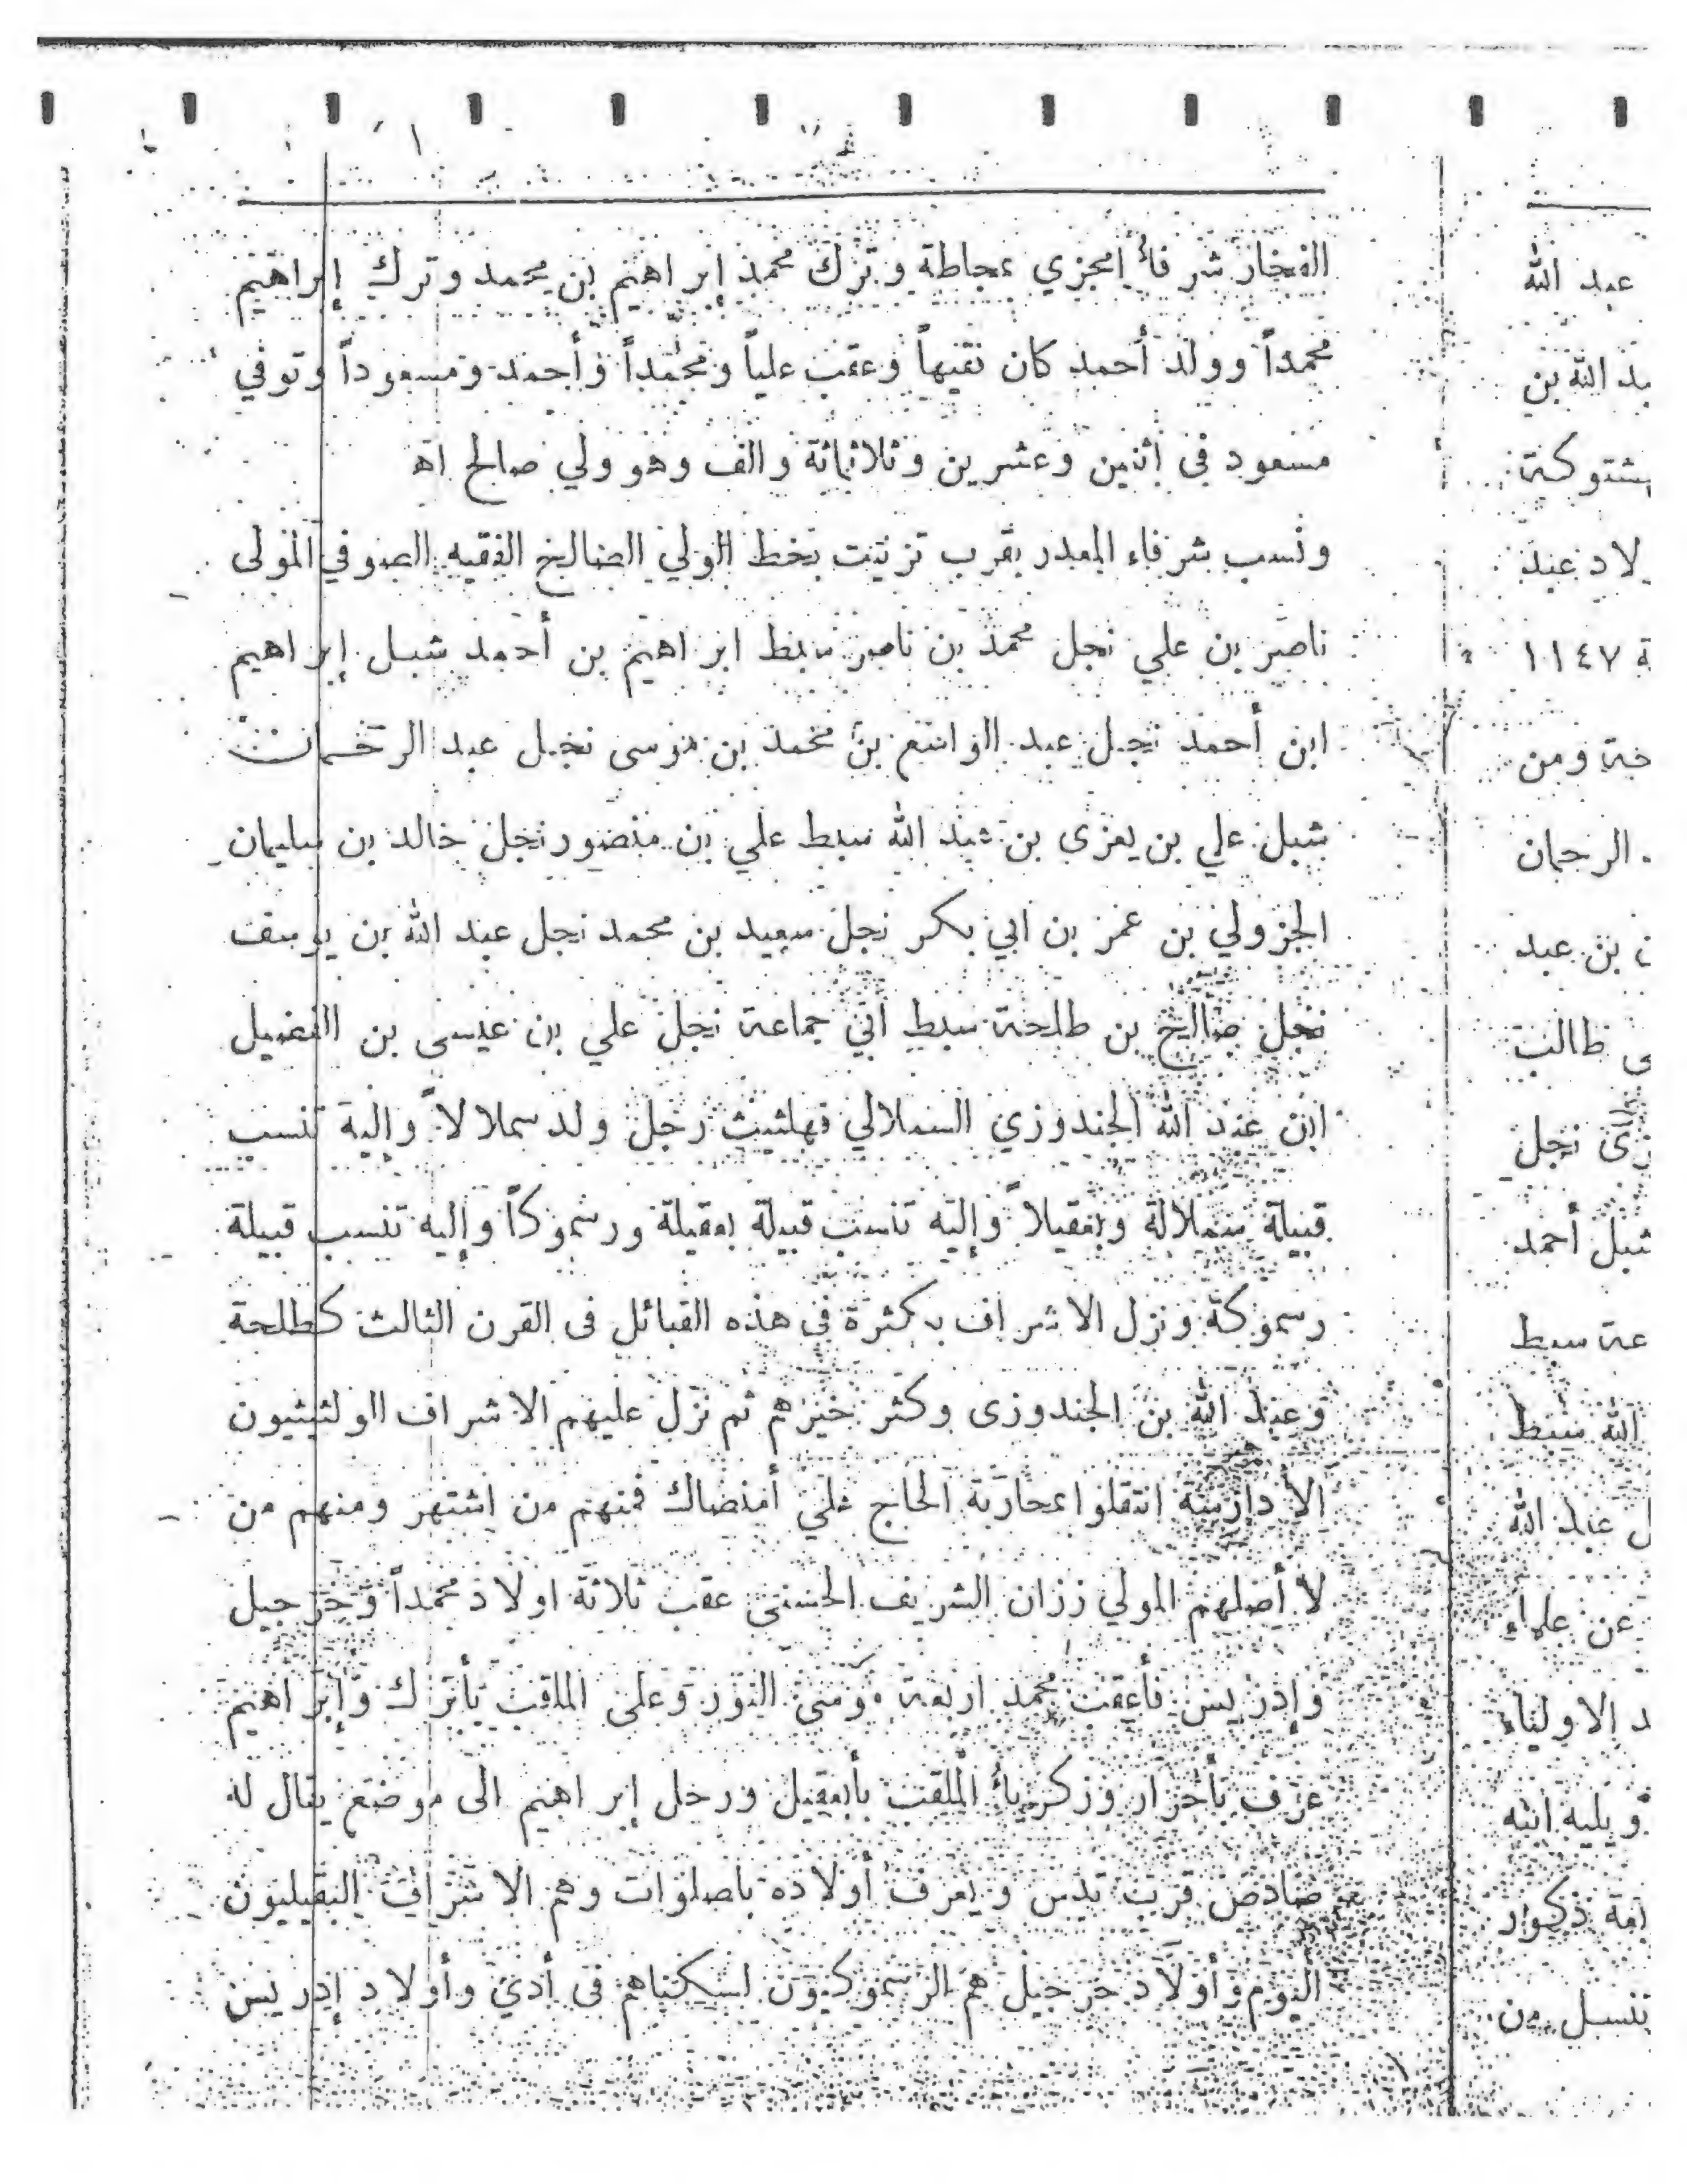 الفخار شرفاء امجزي بمجاطة وترك محمد إبراهيم بن محمد وترك إبراهيم
محمداً وولد أحمد كان فقيهاً وعقب علياً ومحمداً وأحمد ومسعوداً وتوفي
مسعود في اثنين وعشرين وثلاثمائة والف وهو ولي صالح اه
ونسب شرفاء المعدر بقرب تزنيت بخط الولي الصالح الفقيه الصوفي المولى
ناصر بن علي نجل محمد بن ناصر سبط ابراهيم بن أحمد شبل إبراهيم
ابن أحمد نجل عبد الواسع بن محمد بن موسى نجل عبد الرحمان
شبل علي بن يعزى بن عبد الله سبط علي بن منصور نجل خالد بن سليمان
الجزولي بن عمر بن ابي بكر نجل سعيد بن محمد نجل عبد الله بن يوسف
نجل صالح بن طلحة سبط أبي جماعة نجل علي بن عيسى بن الفضيل
ابن عبد الله الجندوزي السملالي رجل ولد سملالاً وإليه تنسب
قبيلة سملالة وبعقيلاً وإليه تنسب قبيلة بعقيلة ورسموكاً وإليه تنسب قبيلة
رسموكة ونزل الاشراف بكثرة في هذه القبائل فى القرن الثالث كطلحة
وعبد الله بن الجندوزى وكثر خيرهم ثم نزل عليهم الاشراف الولثيثيون
الادارسة انتقلوا بمحاربة الحاج علي أمنصاك فمنهم من اشتهر ومنهم من
لا أصلهم المولي زران الشريف الحسنى عقب ثلاثة اولاد محمداً وخرجيل
وإدريس فأعقب محمد اربعة موسى النور وعلى الملقب بأبزاك وإبراهيم
عرف بأحزار وزكرياء الملقب بأبعقيل ورحل إبراهيم الى موضع يقال له
قرب تدس ويعرف أولاده باصلوات وهم الاشراف البعقيليون
اليوم وأولاد خرجيل هم الرسموكيون لسكناهم فى أدي وأولاد إدريس
عبد الله
بد الله بن
شتوكة
لاد عبد
ة ١١٤٧
خة ومن
الرحمان
ن بن عبد
ى طالب
زى نجل
شبل أحمد
عة سبط
الله سبط
ل عبد الله
عن علماء
د الاولياء
ويليه ابنه
بعة ذكور
تنسل من